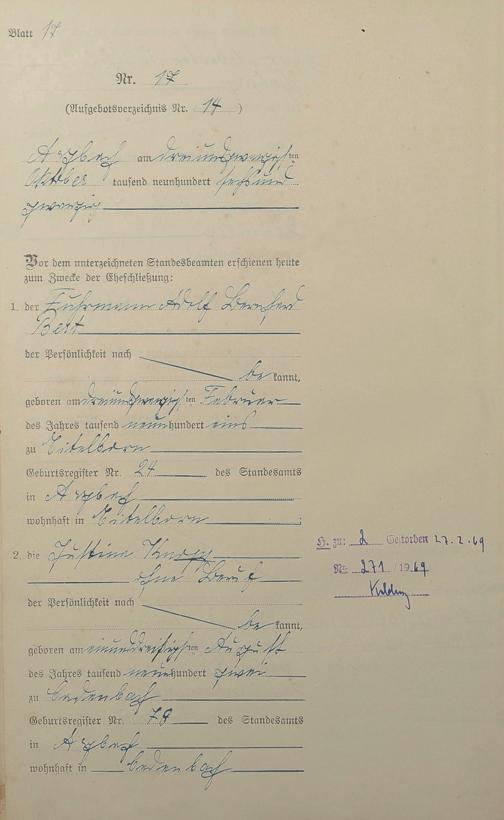 Blatt 17
Nr. 17
(Aufgebotsverzeichnis Nr. 14)
Arzbach am dreiundzwanzigsten
Oktober tausend neunhundert sechsund
zwanzig
Vor dem unterzeichneten Standesbeamten erschienen heute
zum Zwecke der Eheschließung:
1. der Fuhrmann Adolf Bernhard
Bett
der Persönlichkeit nach
be kannt,
geboren am dreiundzwanzigsten Februar
des Jahres tausend neunhundert eins
zu Eitelborn
Geburtsregister Nr. 24 des Standesamts
in Arzbach
wohnhaft in Eitelborn ;
2. die Justina
ohne Beruf
der Persönlichkeit nach
be kannt,
geboren am einunddreißigsten August
des Jahres tausend neunhundert zwei
zu Cadenbach
Geburtsregister Nr. 78 des Standesamts
in Arzbach
wohnhaft in Cadenbach
H. zu: 2 Gestorben 27.2.69
Nr. 271 / 1969